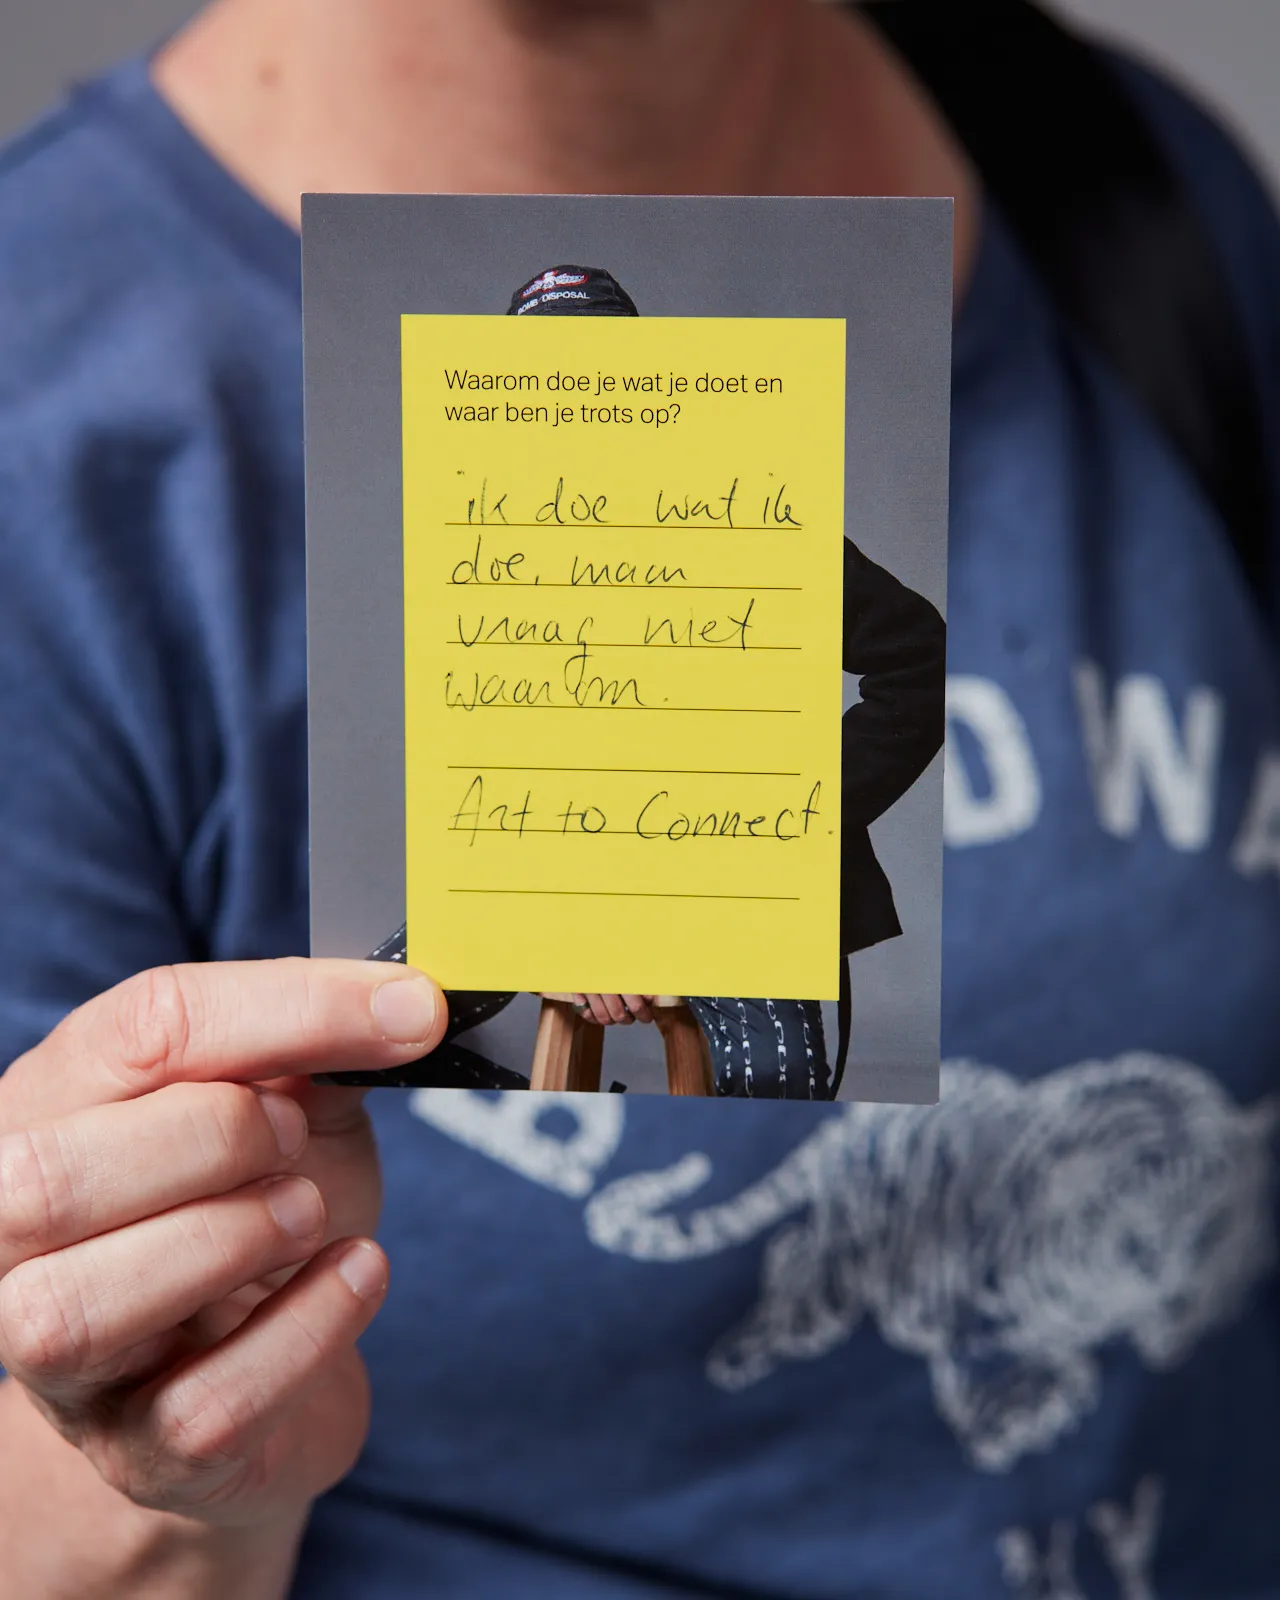 BOMB DISPOSAL
Waarom doe je wat je doet en
waar ben je trots op?
ik doe wat ik
doe, maar
vraag niet
waarom.
Art to Connect.
DWA
B
NY